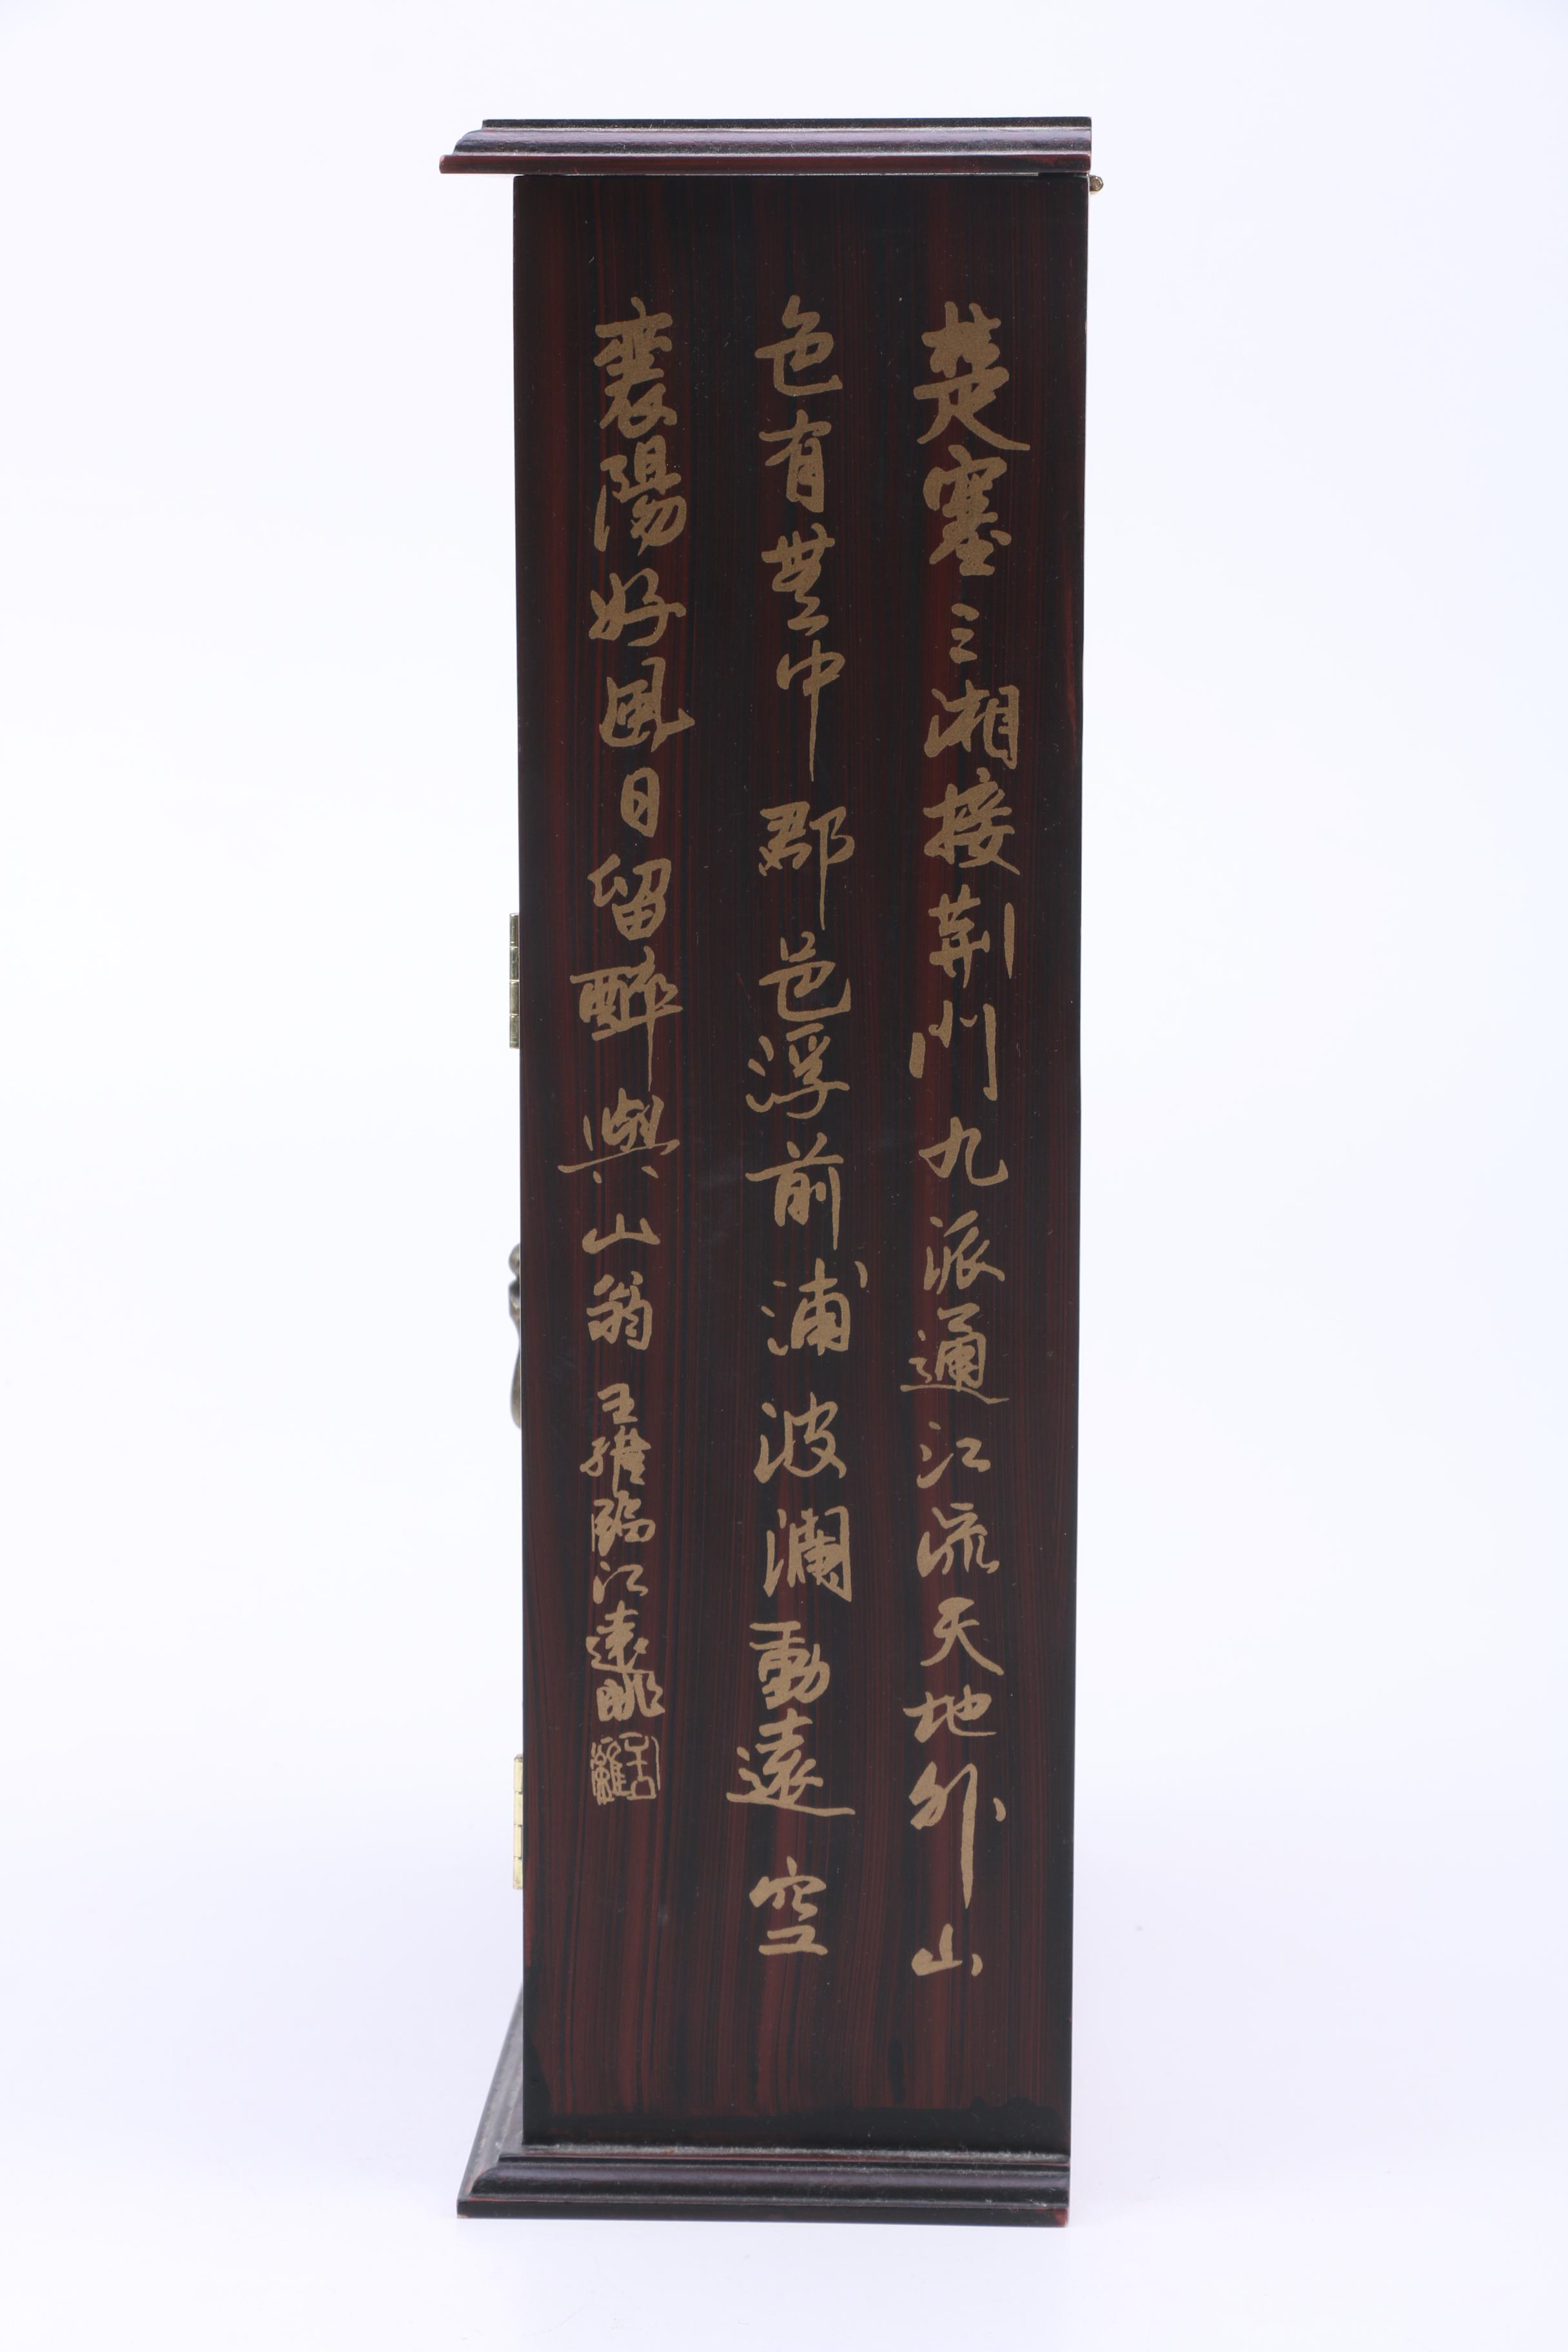 楚塞三湘接荆門九派通江流天地外山
色有無中郡邑浮前浦波瀾動遠空
襄陽好風日留醉與山翁 王維臨江遠眺